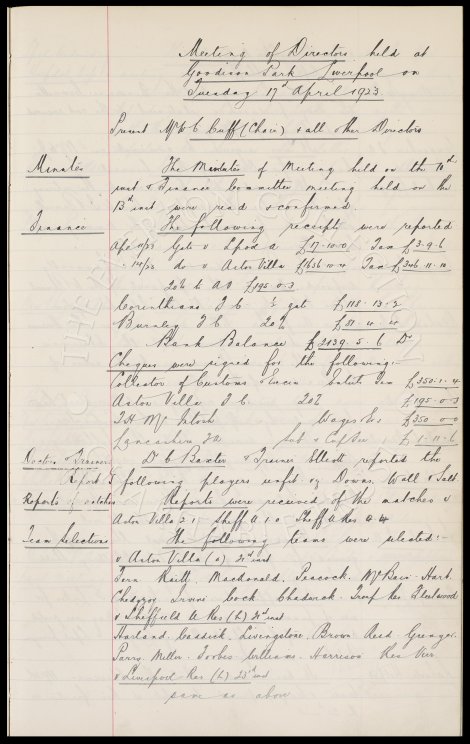 Meeting of Directors held at
Goodison Park Liverpool on
Tuesday 17th April 1923
Present Mr W C Cuff (Chair) & all other Directors
Minutes The Minutes of Meeting held on the 10th
inst & Finance Committee meeting held on the
13th inst were read & confirmed.
Finance The following receipts were reported
Apl Gate v Lpool A £17.10.0 Tax £3.9.6
" 14/23 do v Aston Villa £1636.10.4 Tax £346.11.10
20% to AV £195.0.3
Corinthians F C ½ gate £118.13.2
Burnley F C 20% £81.4.4
Bank Balance £2139.5.6 Dr
Cheques were signed for the following:-
Collector of Customs & Excise Entets Tax £350.1.4
Aston Villa F C 20% £195.0.3
T H McIntosh Wages £350.0.0
Lancashire FA Sub & Cup £1.11.6
Doctor & Trainer Dr C Baxter & Trainer Elliott reported the
Report following players unfit. Downs, Wall &
Reports of matches Reports were received of the matches v
Aston Villa 2.1 Sheff A 1.0 Sheff A Res
Team Selections The following teams were selected:-
v Aston Villa (a) 21st inst
Fern Raitt. Macdonald. Peacock. McBain. Hart.
Chedgzoy Irvine Cock Chadwick. Troup Res Fleetwood
v Sheffield U Res (h) 21st inst
Harland. Caddick. Livingstone. Brown Reid Grenyer.
Parry. Miller. Forbes Williams. Harrison Res
v Liverpool Res (h) 23rd inst
same as above